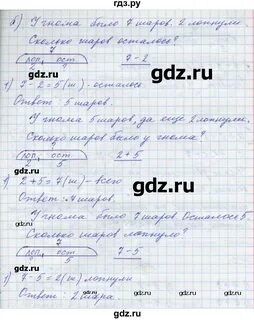 б) У гнома было 7 шаров. 2 лопнули.
Сколько шаров осталось?
7
лоп. ост
2 ?
7-2
1) 7-2=5(ш)-осталось
Ответ: 5 шаров.
У гнома 5 шаров, да ещё 2 лопнули.
Сколько шаров было у гнома?
?
лоп. ост
2 5
2+5
1) 2+5=7(ш)-всего
Ответ: 7 шаров.
У гнома было 7 шаров. Осталось 5.
Сколько шаров лопнуло?
7
лоп. ост
? 5
7-5
1) 7-5=2(ш) лопнули
Ответ: 2 шара.
gdz.ru
gdz.ru
gdz.ru
gdz.ru
gdz.ru
gdz.ru
gdz.ru